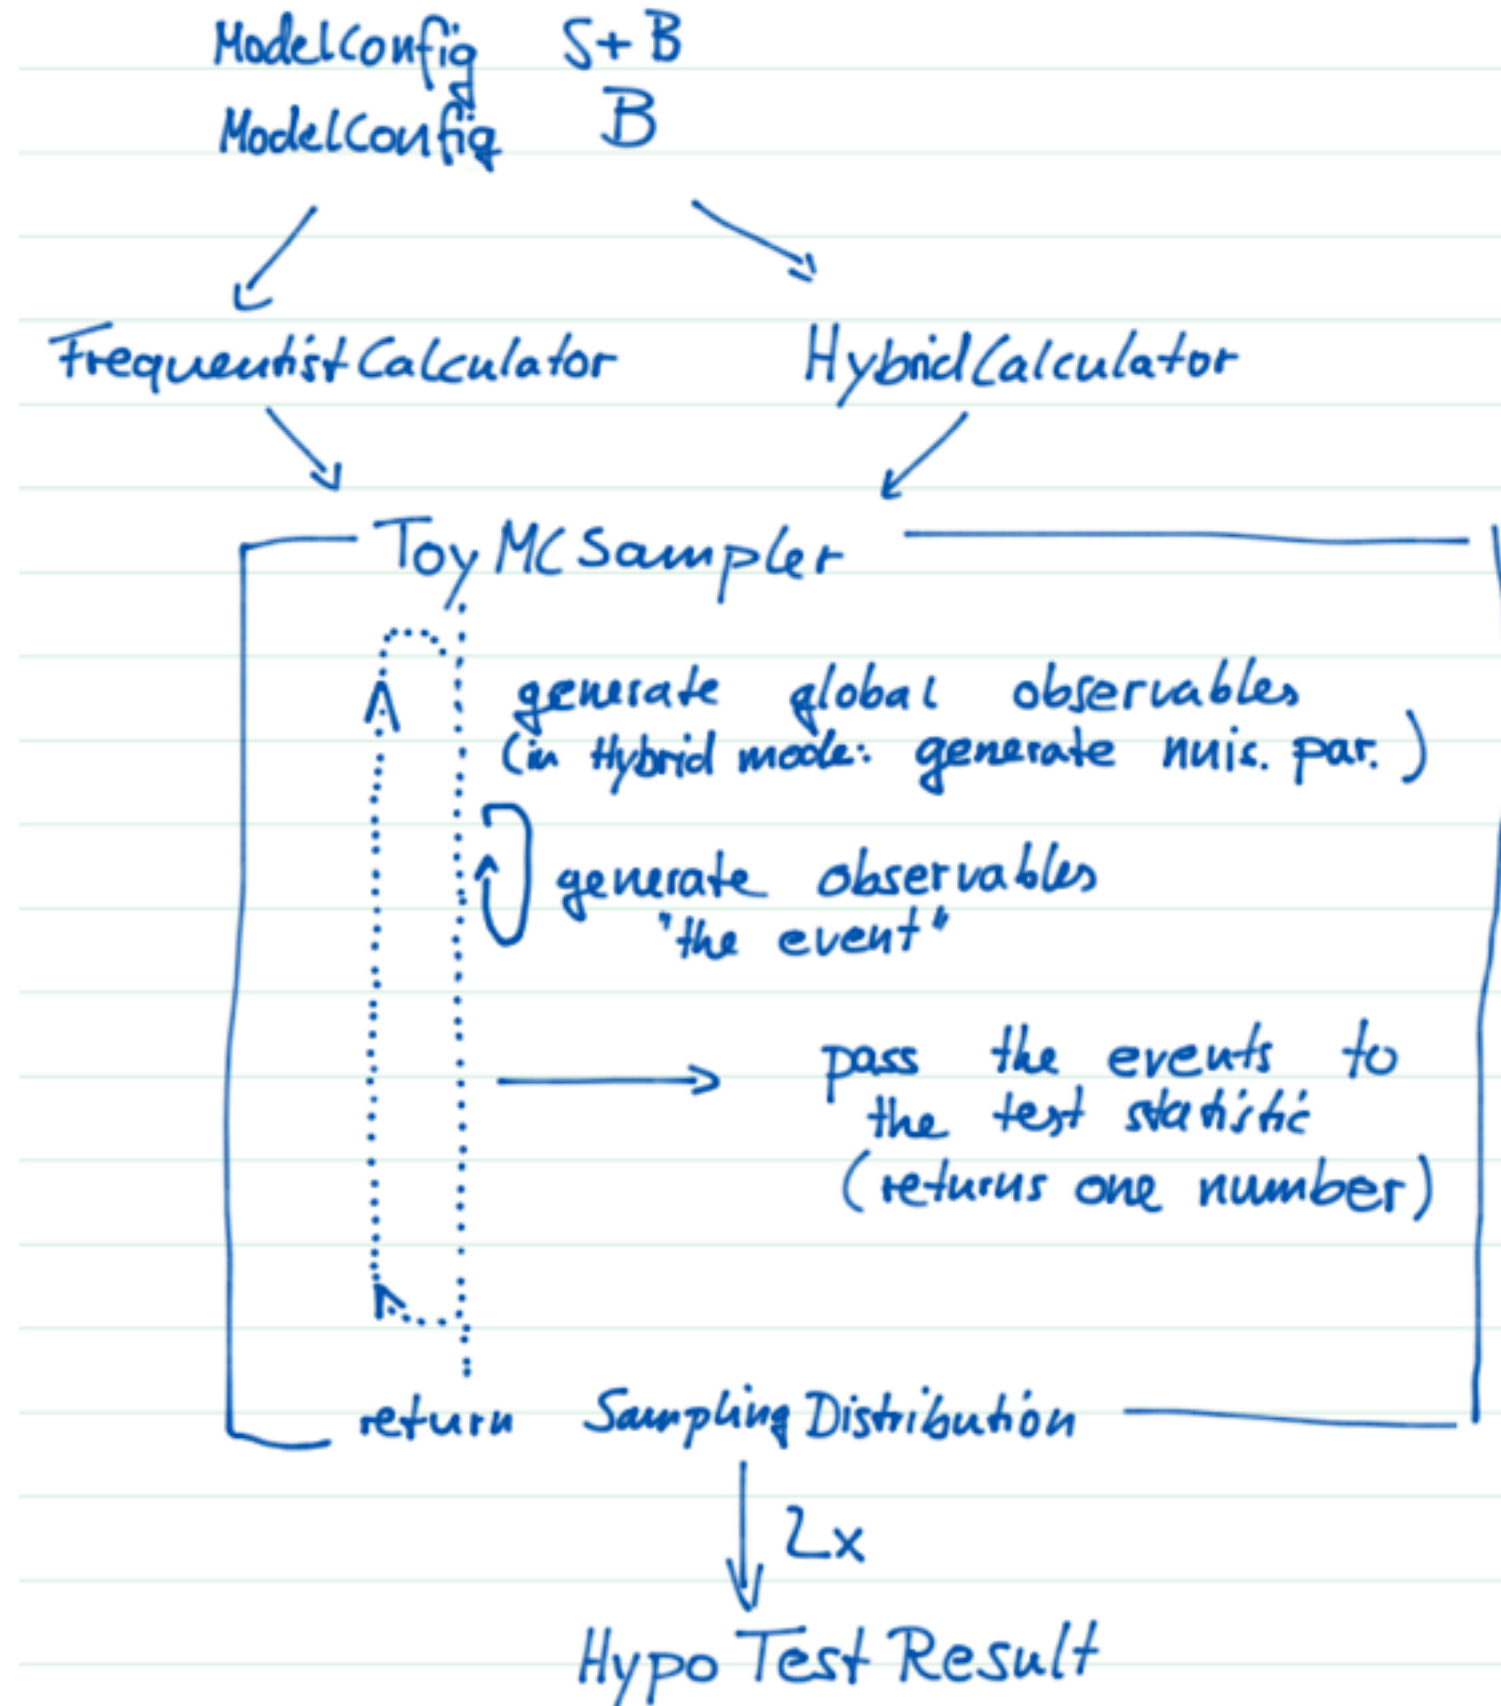 ModelConfig S+B
ModelConfig B
FrequentistCalculator HybridCalculator
ToyMCSampler
generate global observables
(in Hybrid mode: generate nuis. par.)
generate observables
"the event"
pass the events to
the test statistic
(returns one number)
return SamplingDistribution
2x
HypoTestResult